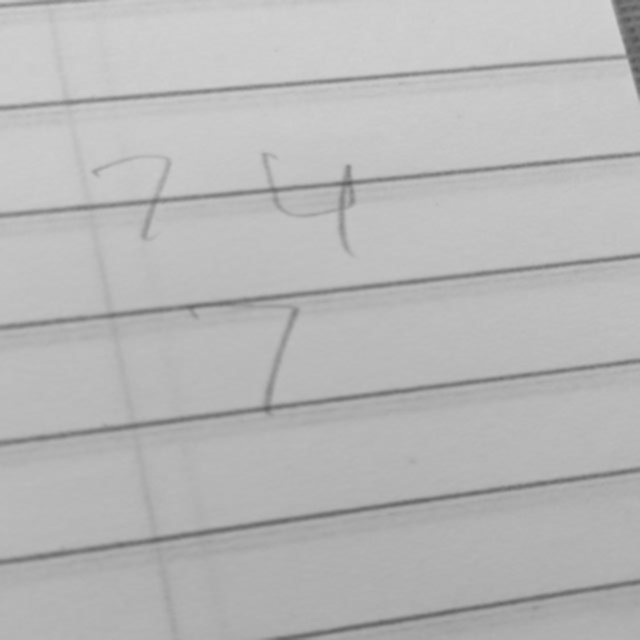 74
7